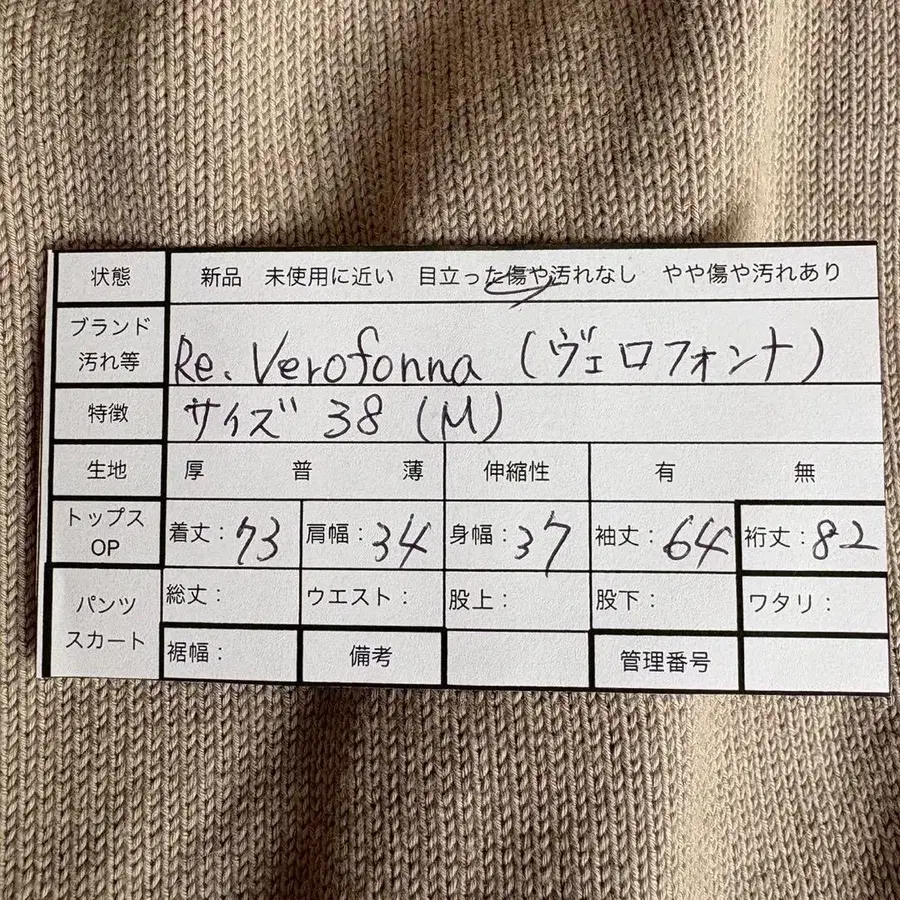 状態 新品 未使用に近い 目立った傷や汚れなし やや傷や汚れあり
ブランド
汚れ等 Re. Verofonna (ヴェロフォンナ)
特徴 サイズ 38 (M)
生地 厚 普 薄 伸縮性 有 無
トップス
OP 着丈：73 肩幅：34 身幅：37 袖丈：64 裄丈：82
パンツ
スカート 総丈： ウエスト： 股上： 股下： ワタリ：
裾幅： 備考 管理番号